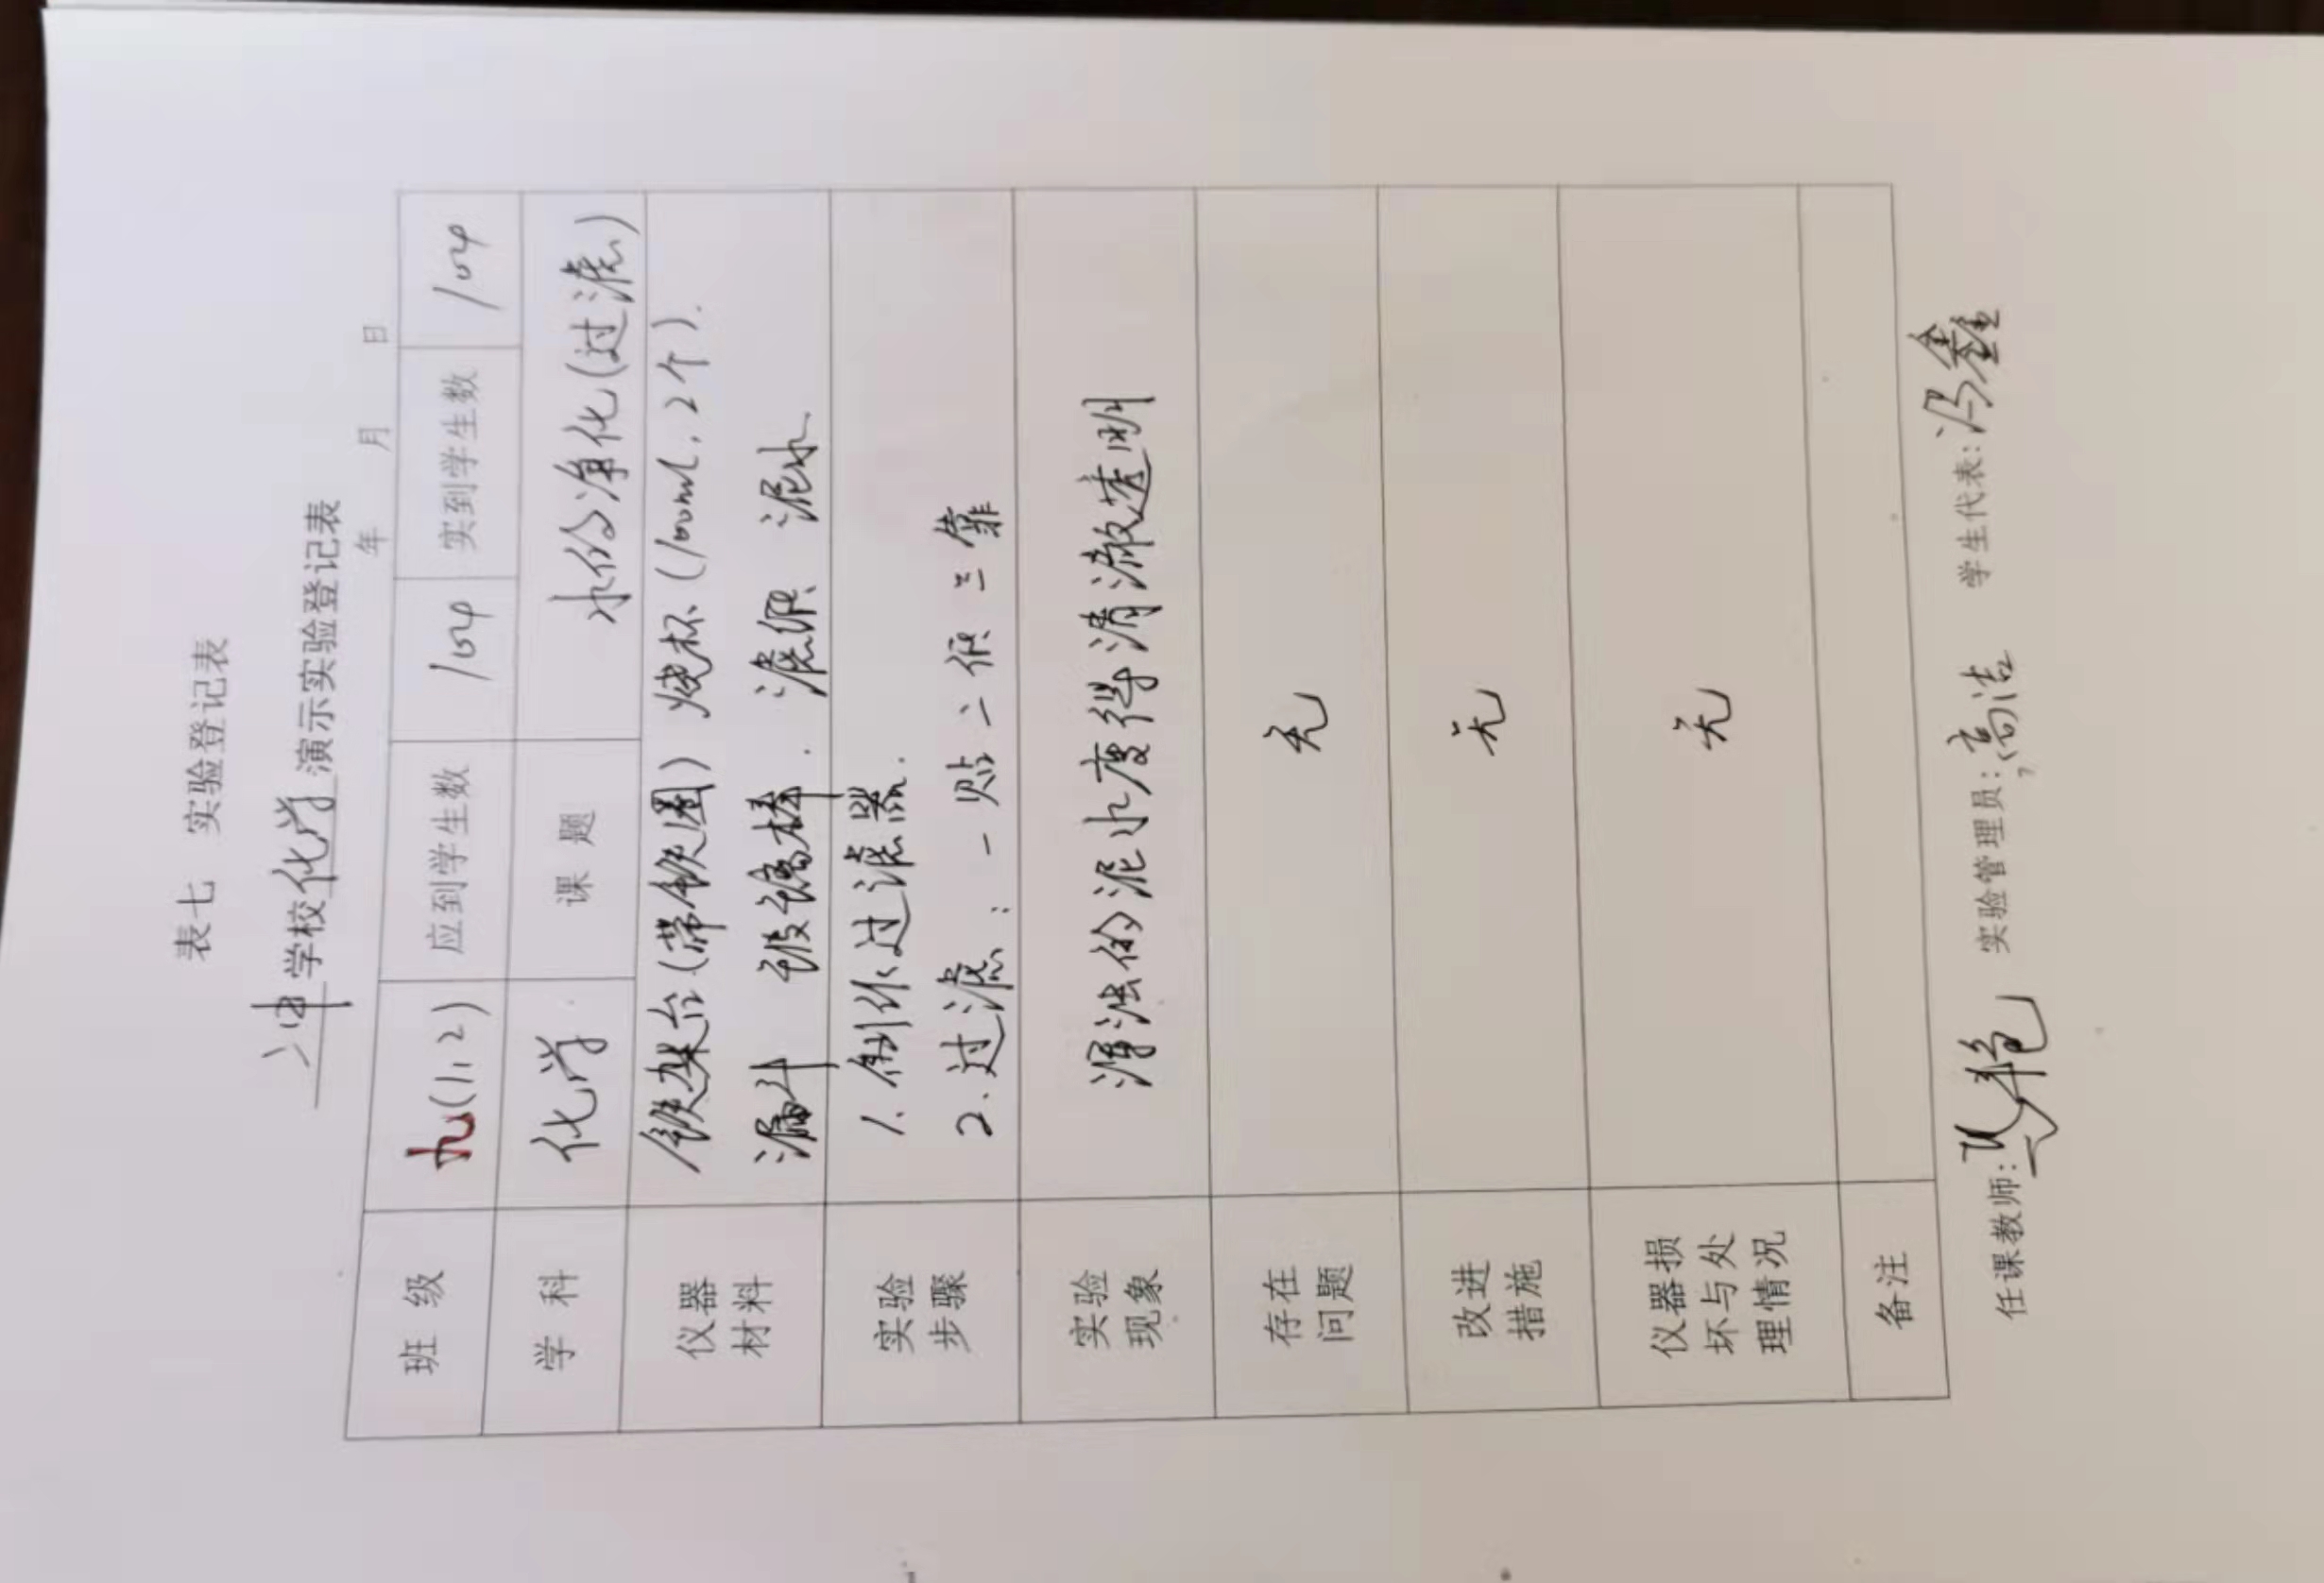 表七 实验登记表
中学校化学演示实验登记表
年 月 日
班级 九(1,2) 应到学生数 104 实到学生数 104
学科 化学 课题 水的净化(过滤)
仪器材料 铁架台(带铁圈) 烧杯(100mL,2个).
漏斗 玻璃棒. 滤纸 泥水
实验步骤 1.制作过滤器.
2.过滤: 一贴 二低 三靠
实验现象 浑浊的泥水变得清澈透明
存在问题 无
改进措施 无
仪器损坏与处理情况 无
备注
任课教师: 实验管理员:高洁 学生代表:冯鑫